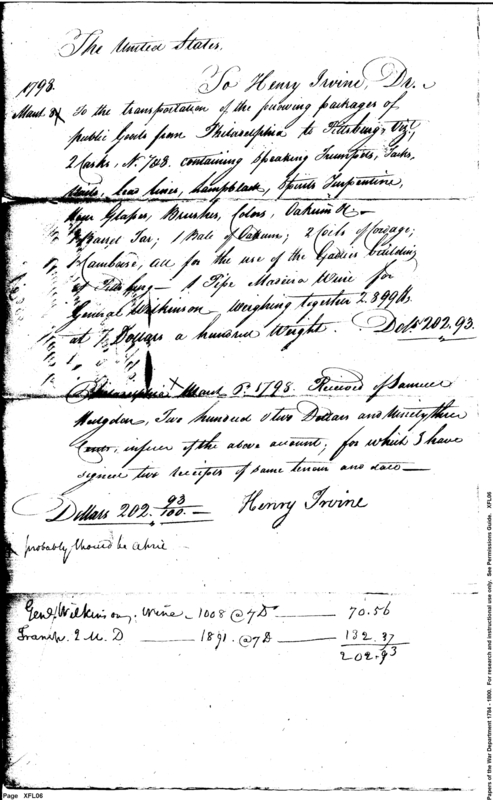 The United States.
To Henry Irvine, Dr.
1798.
March 8 To the transportation of the following packages of
public Goods from Philadelphia to Pittsburg, Vizt.
2 Casks, No. 7 & 8. containing Speaking Trumpets, Tacks,
Nails, lead lines, lampblack, Spirits Turpentine,
Hour Glasses, Brushes, Colors, Oakum &c
1 Barrel Tar; 1 Bale of Oakum; 2 Coils of Cordage;
all for the use of the Gallies building
at Pittsburg — 1 Pipe Madeira Wine for
General Wilkinson weighing together 2899 lbs
at 7 Dollars a hundred Weight. Dolls 202.93.
Philadelphia March 1798. Received of Samuel
Hodgdon, Two hundred & two Dollars and Ninety three
Cents, in full of the above account; for which I have
signed two receipts of same tenour and date —
Dollars 202. 93/100. — Henry Irvine
probably should be April
Genl. Wilkinson, Wine — 1008 @ 7 D — 70.56
Transp. Q M. D — 1891. @ 7 D — 132.37
202.93
Page XFL06
Papers of the War Department 1784 - 1800. For research and instructional use only. See Permissions Guide. XFL06